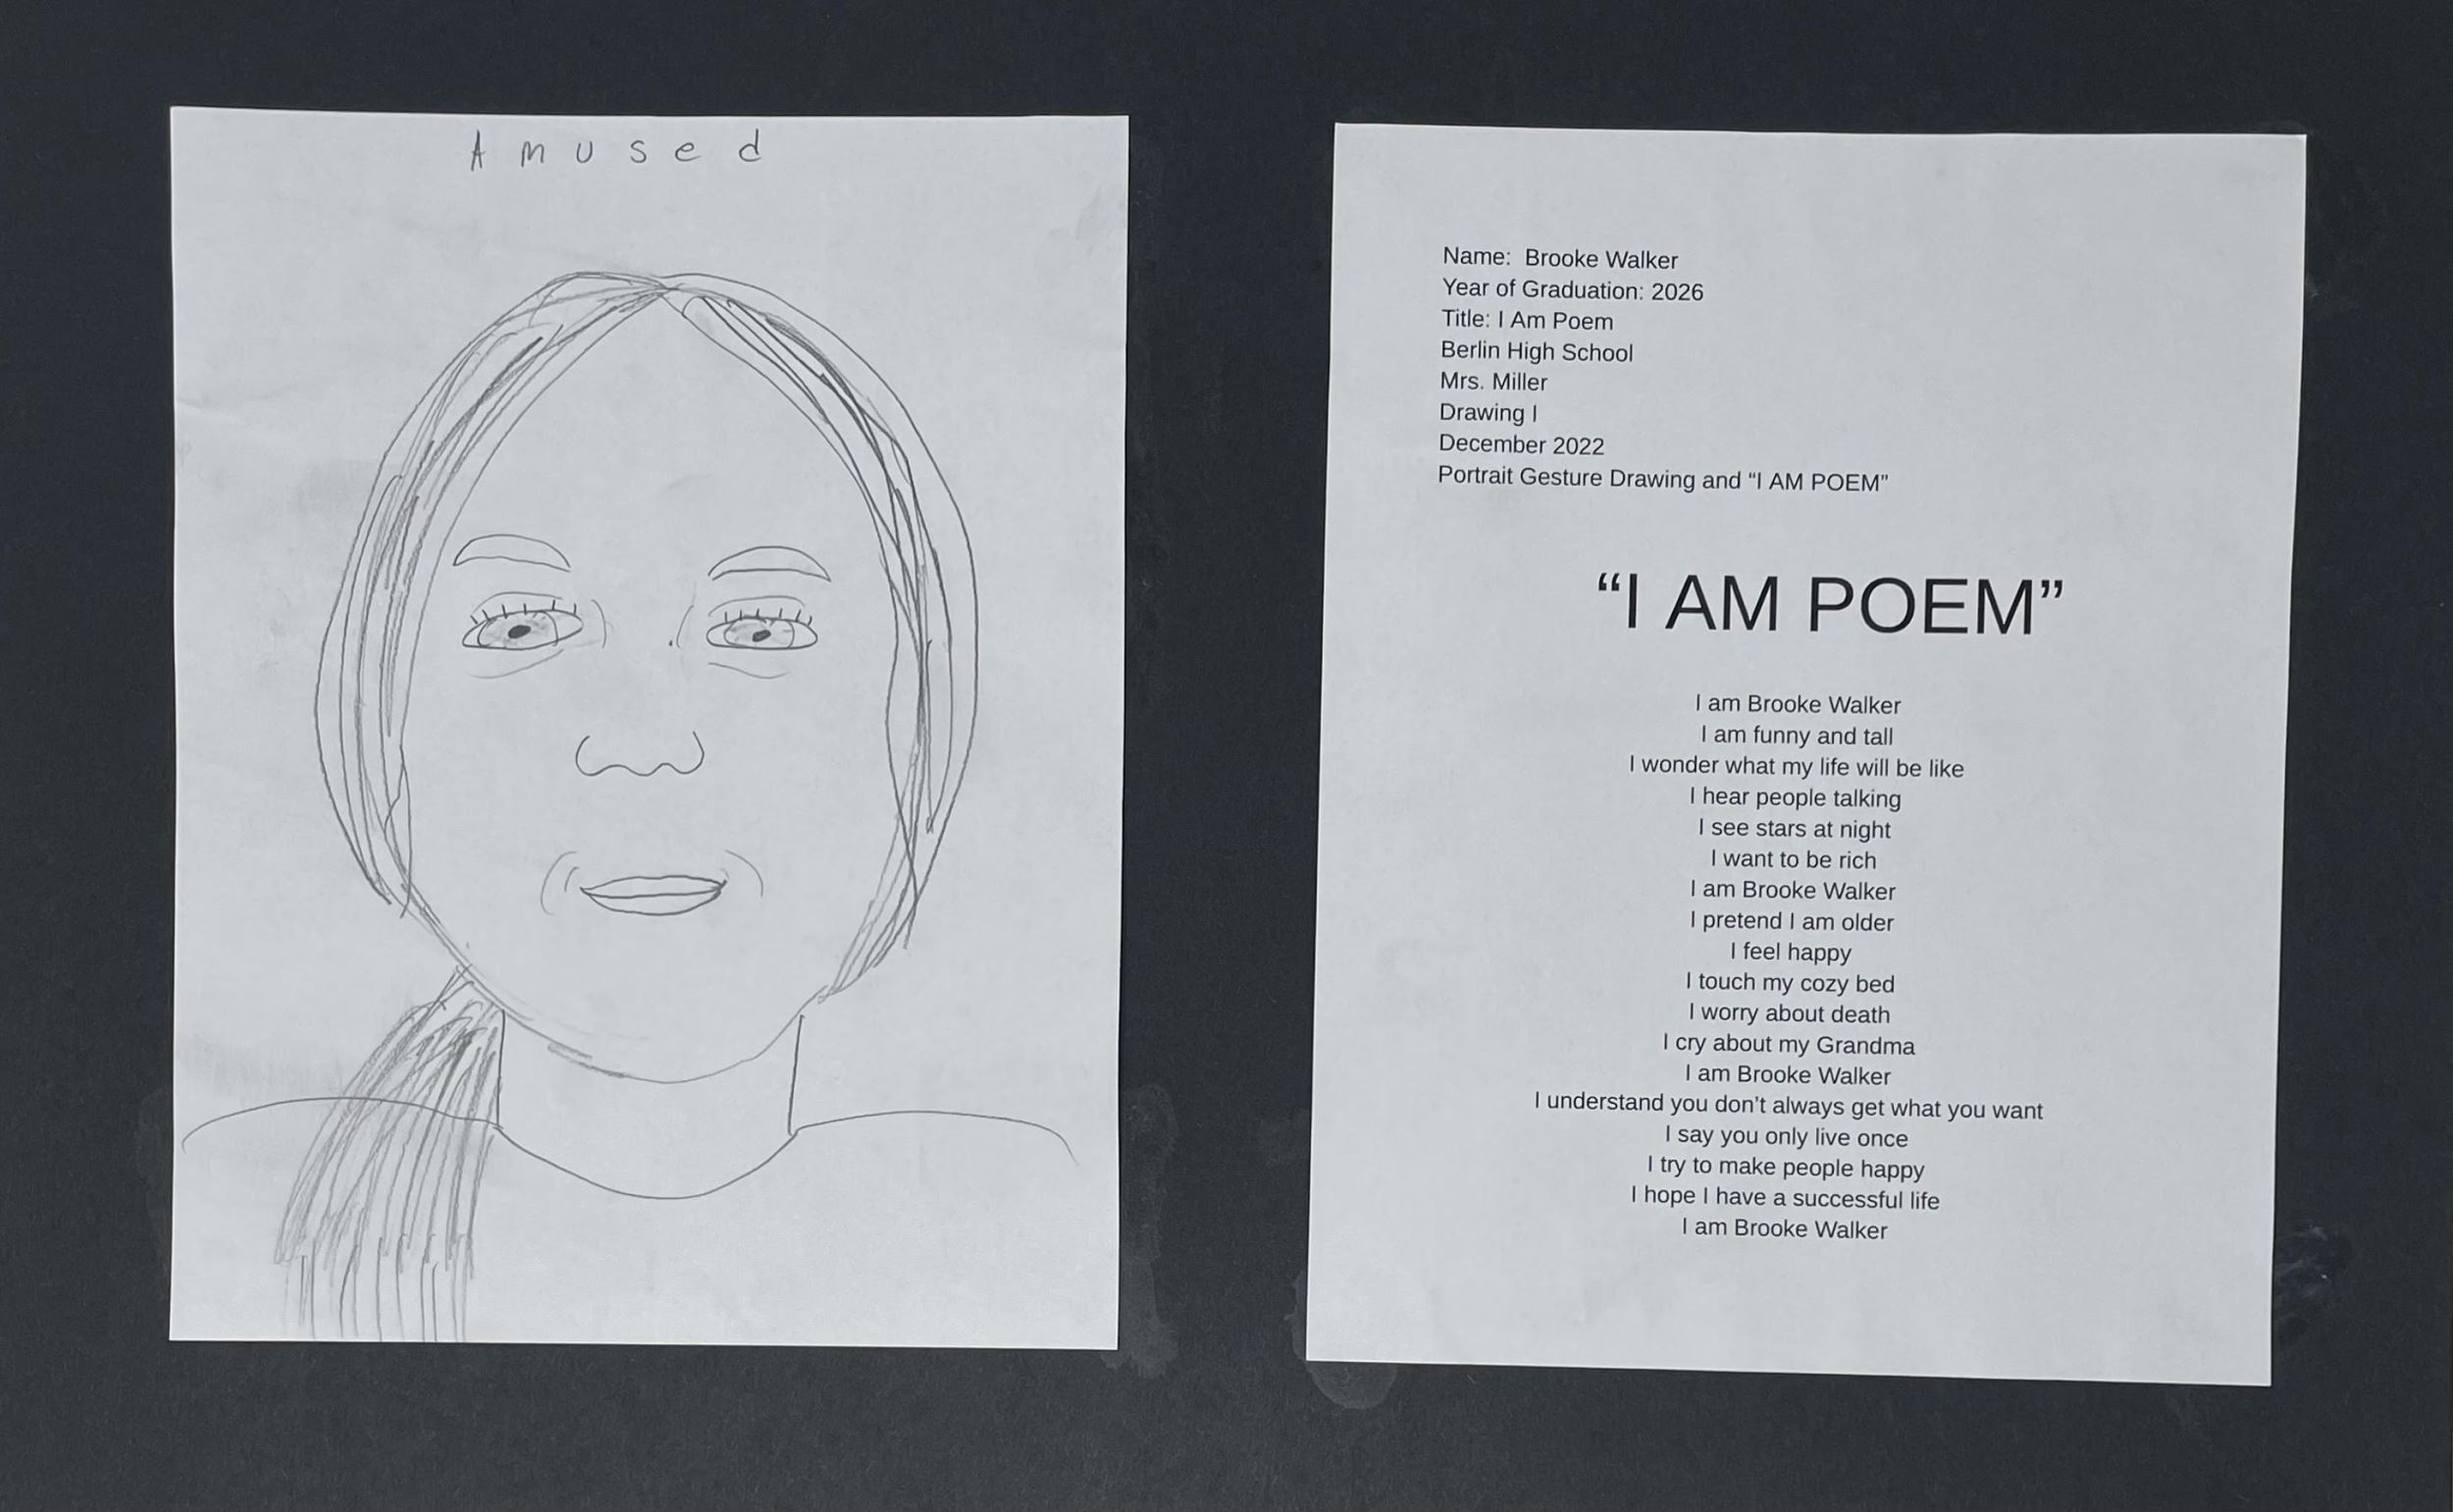 Amused
Name: Brooke Walker
Year of Graduation: 2026
Title: I Am Poem
Berlin High School
Mrs. Miller
Drawing I
December 2022
Portrait Gesture Drawing and “I AM POEM”
“I AM POEM”
I am Brooke Walker
I am funny and tall
I wonder what my life will be like
I hear people talking
I see stars at night
I want to be rich
I am Brooke Walker
I pretend I am older
I feel happy
I touch my cozy bed
I worry about death
I cry about my Grandma
I am Brooke Walker
I understand you don’t always get what you want
I say you only live once
I try to make people happy
I hope I have a successful life
I am Brooke Walker